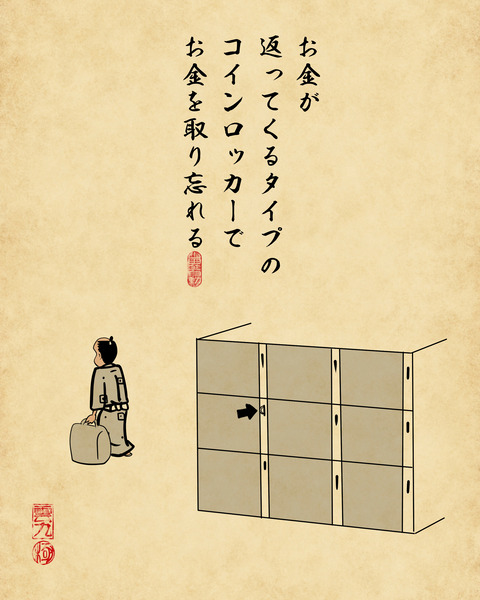 お金が
返ってくるタイプの
コインロッカーで
お金を取り忘れる